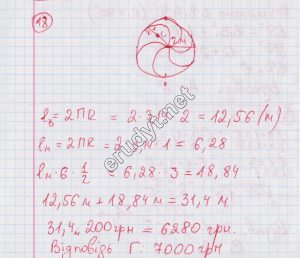 18
2 м
ℓв = 2πR = 2 · 3,14 · 2 = 12,56 (м)
ℓм = 2πR = 2 · 3,14 · 1 = 6,28
ℓм · 6 · 1/2 = 6,28 · 3 = 18,84
12,56 м + 18,84 м = 31,4 м
31,4 · 200 грн = 6280 грн.
Відповідь Г: 7000 грн
erudyt.net